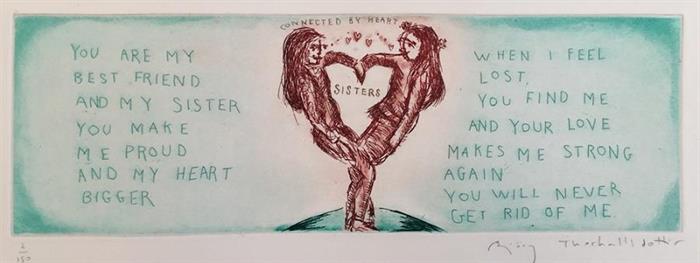 CONNECTED BY HEART
YOU ARE MY
BEST FRIEND
AND MY SISTER
YOU MAKE
ME PROUD
AND MY HEART
BIGGER
SISTERS
WHEN I FEEL
LOST,
YOU FIND ME
AND YOUR LOVE
MAKES ME STRONG
AGAIN
YOU WILL NEVER
GET RID OF ME.
2/150
Thorhallsdottir